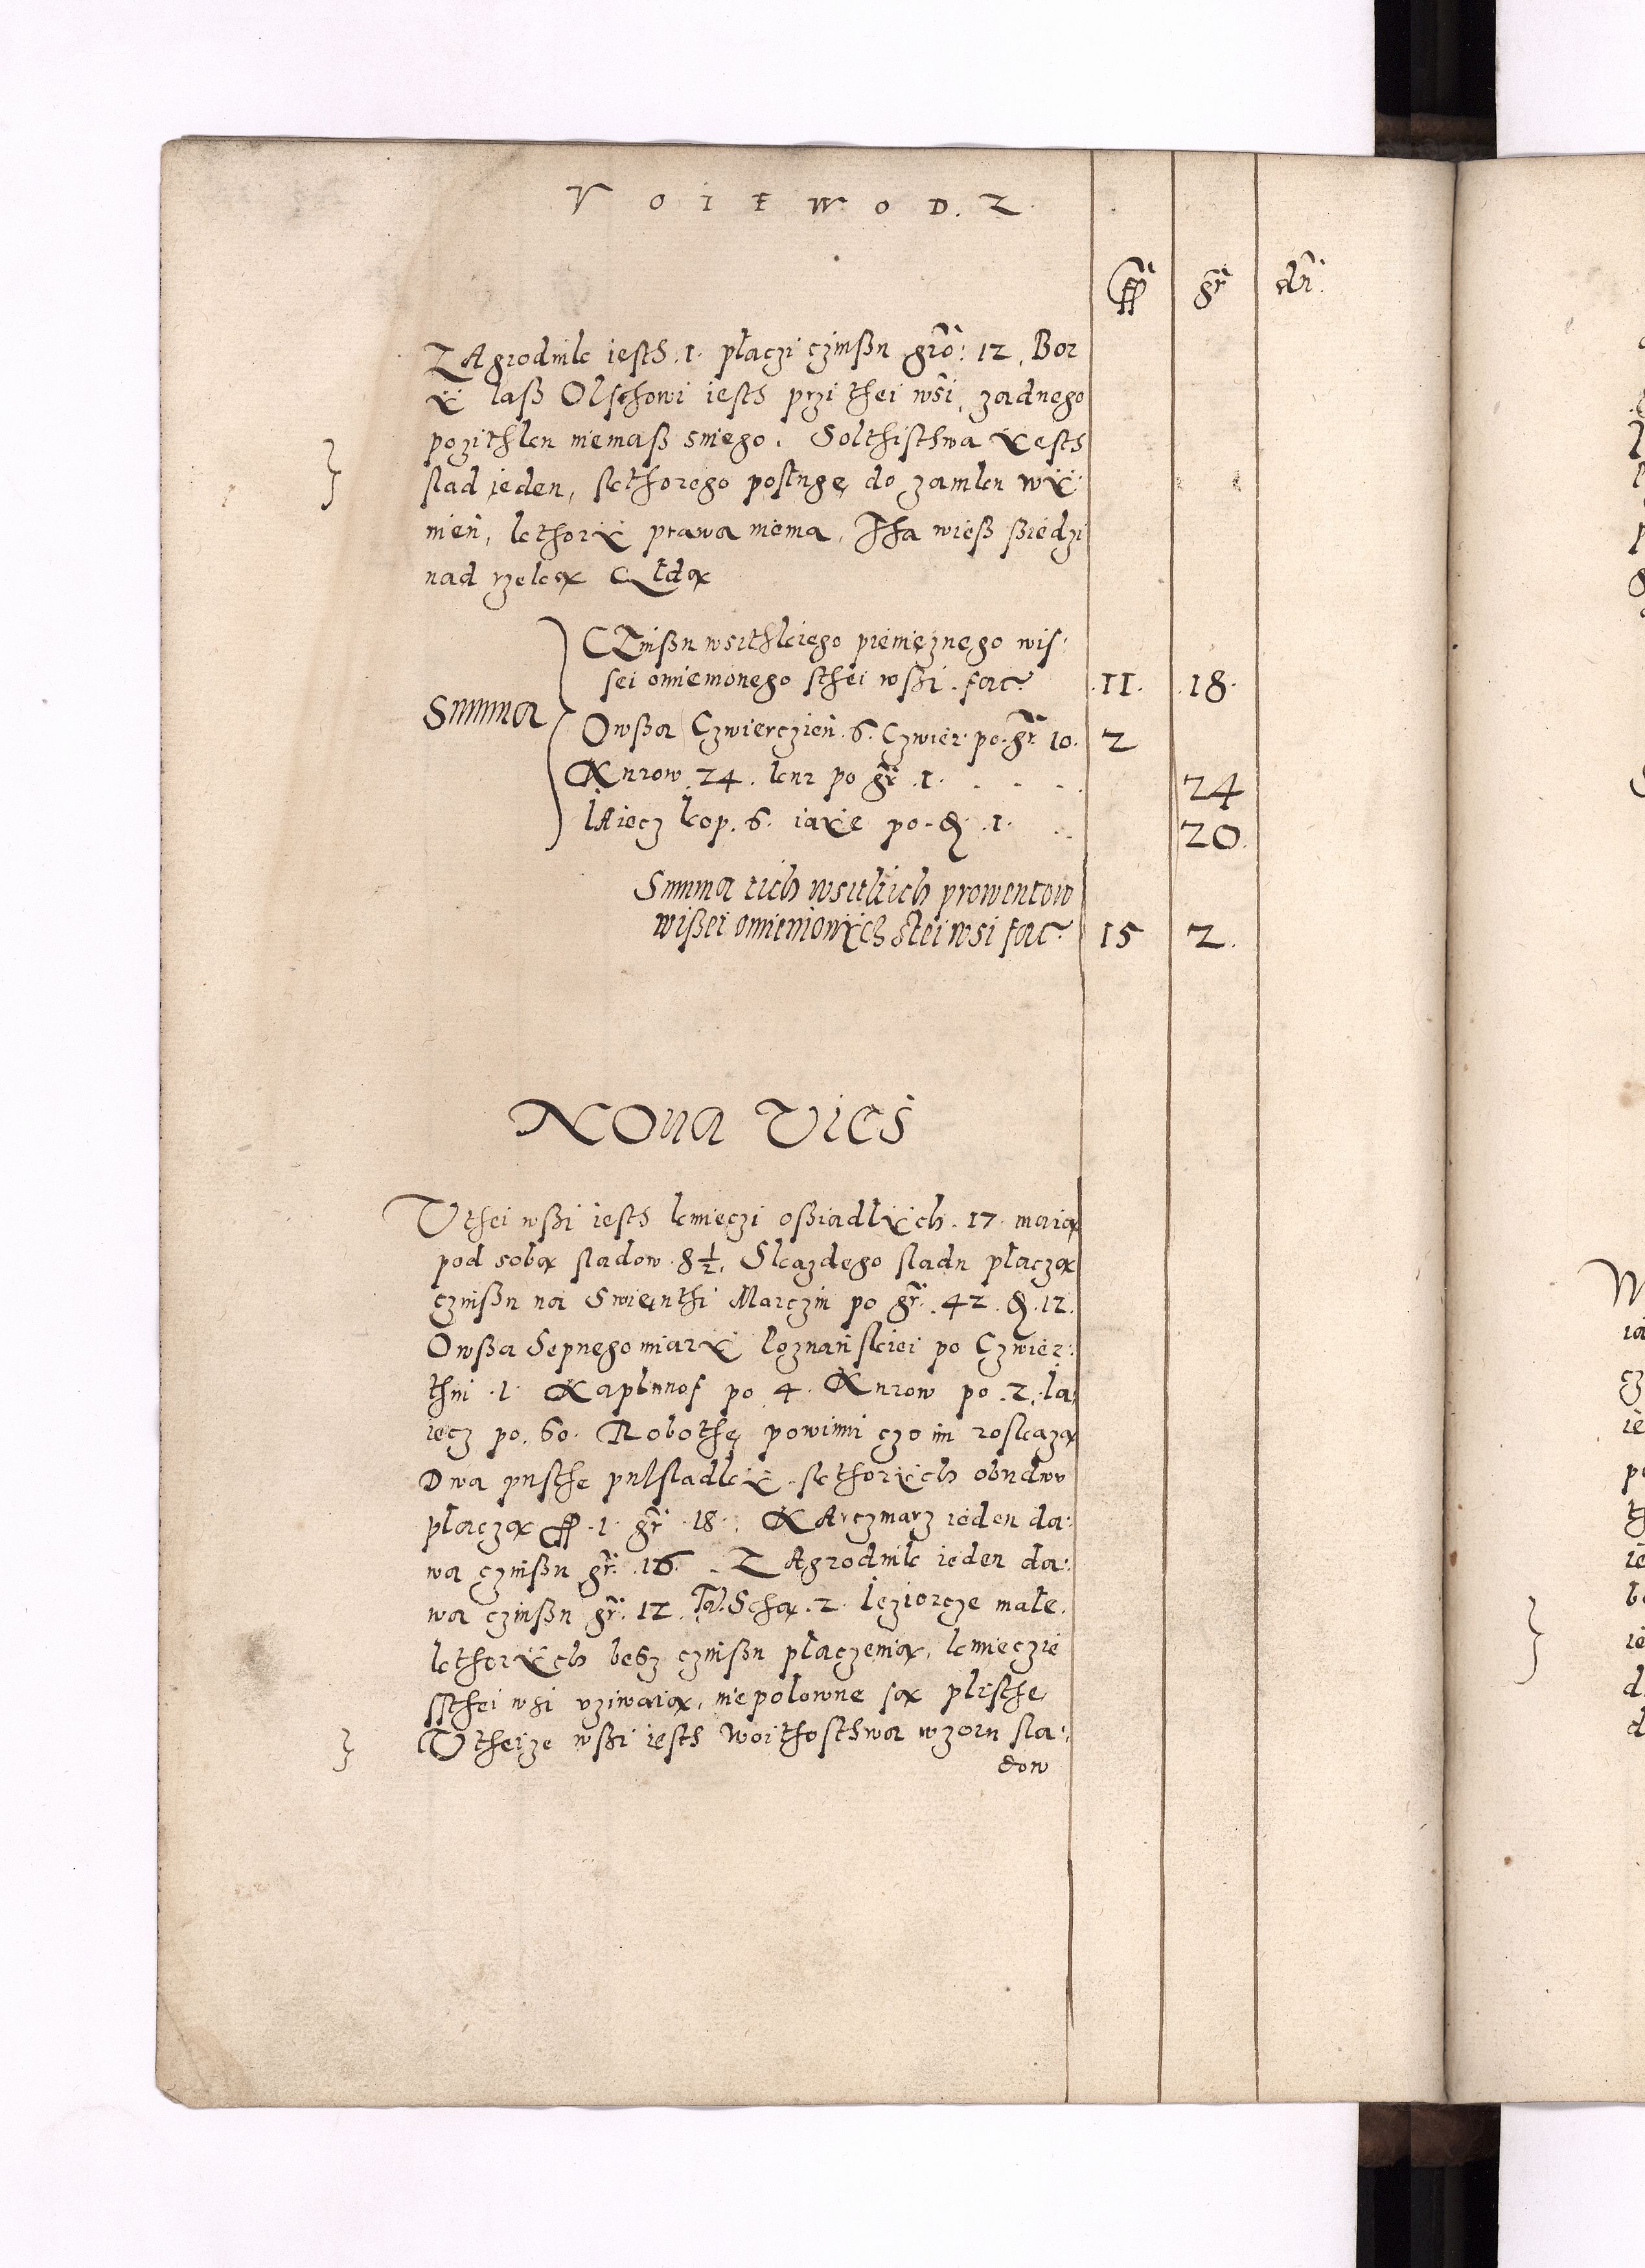 VOIEWOD. Z
gr dn.
ZAgrodnik iesth .1. płaczi czinßu gro: 12. Bor
ẏ laß Olschowi iesth przi thei wsi, zadnego
pozithku niemaß sniego. Solthisthwa ẏesth
slad ieden, skthorego posluge do zamku wẏ
nien, kthorẏ prawa niema, Tha wieß ßiedzi
nad rzeką
CZinßu wsithkiego pienięznego wis:
sei omiemonego sthei wßi . fac̃ .11. .18.
Summa
Owßa Czwierczien .6. Czwier. po. gr 10. 2
Kurow .24. kur po gr .1. 24
IAiecz kop. 6. iaẏe po. ₰ .1. 20.
Summa tich wsitkich prowentow
wißei omienionẏch stei wsi fac̃ 15 2.
NOua Vieś
Vthei wßi iesth kmieczi oßiadłẏch .17. maią
pod sobą sladow .8½. Skazdego sladu płaczą
czinßu na Swięnthi Marczin po gr. 42. ₰. 12.
Owßa Sepnego miarẏ poznańskiei po Czwier:
thni .1. Kapłunof po .4. Kurow po .2. Ia
iecz po. 60. Robothę powinni czo im roskazą
Dwa pusthe pulsladkẏ. skthorẏch obudwu
płaczą .1. gr .18. KArczmarz ieden da:
wa czinßu gr. 16. ZAgrodnik ieden da:
wa czinßu gr. 12. Są .2. Ieziorcze małe.
kthorẏch besz czinßu płaczenia, kmieczie
sthei wsi vziwaią, niepołowne są plithe
Vtheize wßi iesth woithosthwa wzoru sla:
dow